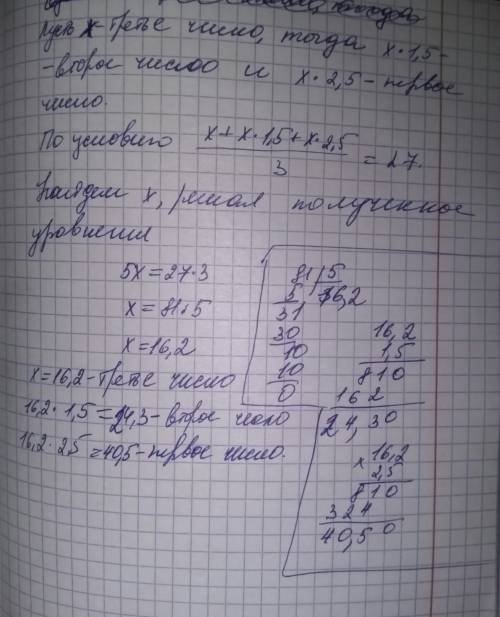 Пусть x-третье число, тогда x·1,5-
-второе число и x·2,5-первое
число.
По условию (x+x·1,5+x·2,5)/3 = 27.
Найдем x, решая полученное
уравнения
5x=27·3
x=81:5
x=16,2
x=16,2-третье число
16,2·1,5=24,3-второе число
16,2·2,5=40,5-первое число.
81 5
5 16,2
31
30
10
10
0
16,2
1,5
810
162
24,30
x 16,2
2,5
810
324
40,50